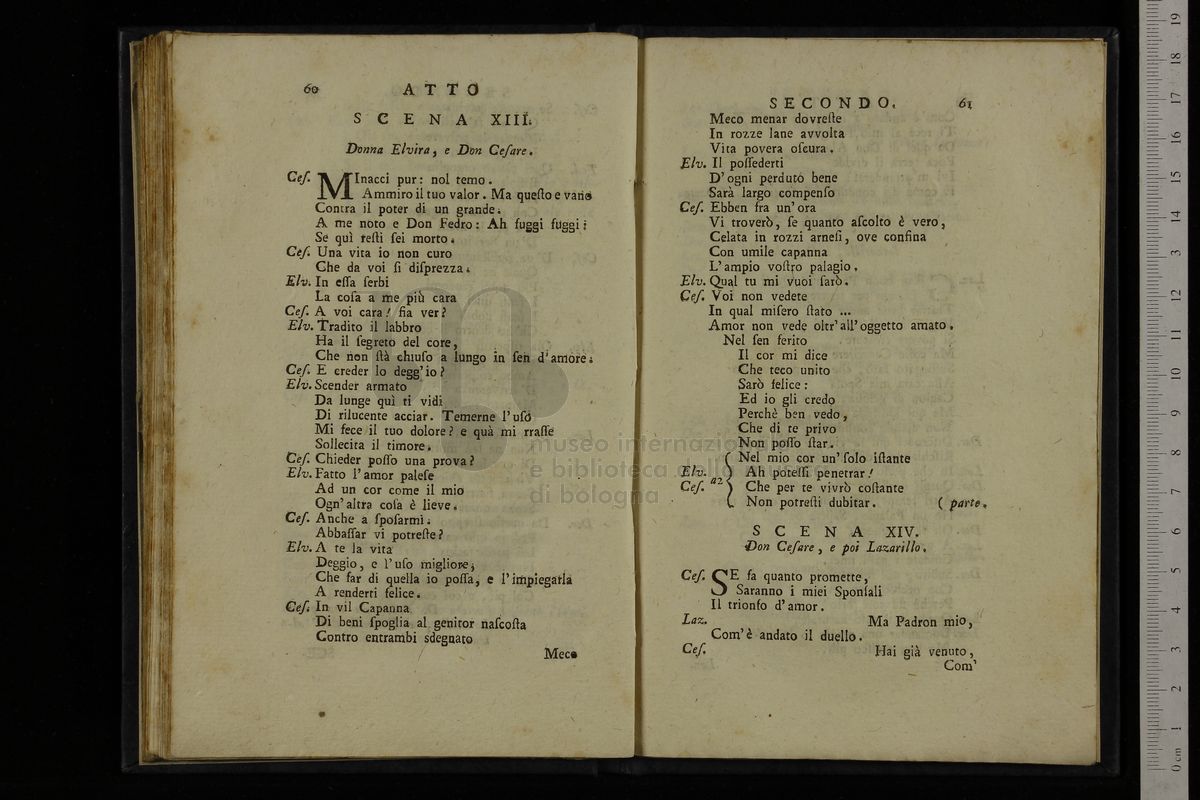 60 ATTO
SCENA XIII.
Donna Elvira, e Don Ceſare.
Ceſ. MInacci pur: nol temo.
Ammiro il tuo valor. Ma queſto e vano
Contra il poter di un grande.
A me noto e Don Fedro: Ah fuggi fuggi:
Se quì reſti ſei morto.
Ceſ. Una vita io non curo
Che da voi ſi diſprezza.
Elv. In eſſa ſerbi
La coſa a me più cara
Ceſ. A voi cara! fia ver?
Elv. Tradito il labbro
Ha il ſegreto del core,
Che non ſtà chiuſo a lungo in ſen d'amore.
Ceſ. E creder lo degg'io?
Elv. Scender armato
Da lunge quì ti vidi
Di rilucente acciar. Temerne l'uſo
Mi fece il tuo dolore? e quà mi rraſſe
Sollecita il timore.
Ceſ. Chieder poſſo una prova?
Elv. Fatto l'amor paleſe
Ad un cor come il mio
Ogn'altra coſa è lieve.
Ceſ. Anche a ſpoſarmi.
Abbaſſar vi potreſte?
Elv. A te la vita
Deggio, e l'uſo migliore,
Che far di quella io poſſa, e l'impiegarla
A renderti felice.
Ceſ. In vil Capanna
Di beni ſpoglia al genitor naſcoſta
Contro entrambi sdegnato
Meco
SECONDO. 61
Meco menar dovreſte
In rozze lane avvolta
Vita povera oſcura.
Elv. Il poſſederti
D'ogni perduto bene
Sarà largo compenſo
Ceſ. Ebben fra un'ora
Vi troverò, ſe quanto aſcolto è vero,
Celata in rozzi arneſi, ove confina
Con umile capanna
L'ampio voſtro palagio.
Elv. Qual tu mi vuoi farò.
Ceſ. Voi non vedete
In qual miſero ſtato ...
Amor non vede oltr'all'oggetto amato.
Nel ſen ferito
Il cor mi dice
Che teco unito
Sarò felice:
Ed io gli credo
Perchè ben vedo,
Che di te privo
Non poſſo ſtar.
Nel mio cor un'ſolo iſtante
Elv. Ah poteſſi penetrar!
Ceſ. a2 Che per te vivrò coſtante
Non potreſti dubitar. ( parte.
SCENA XIV.
Don Ceſare, e poi Lazarillo.
Ceſ. SE fa quanto promette,
Saranno i miei Sponſali
Il trionfo d'amor.
Laz. Ma Padron mio,
Com'è andato il duello.
Ceſ. Hai già venuto,
Com'
museo internazionale
e biblioteca della musica
di bologna
0 cm 1 2 3 4 5 6 7 8 9 10 11 12 13 14 15 16 17 18 19